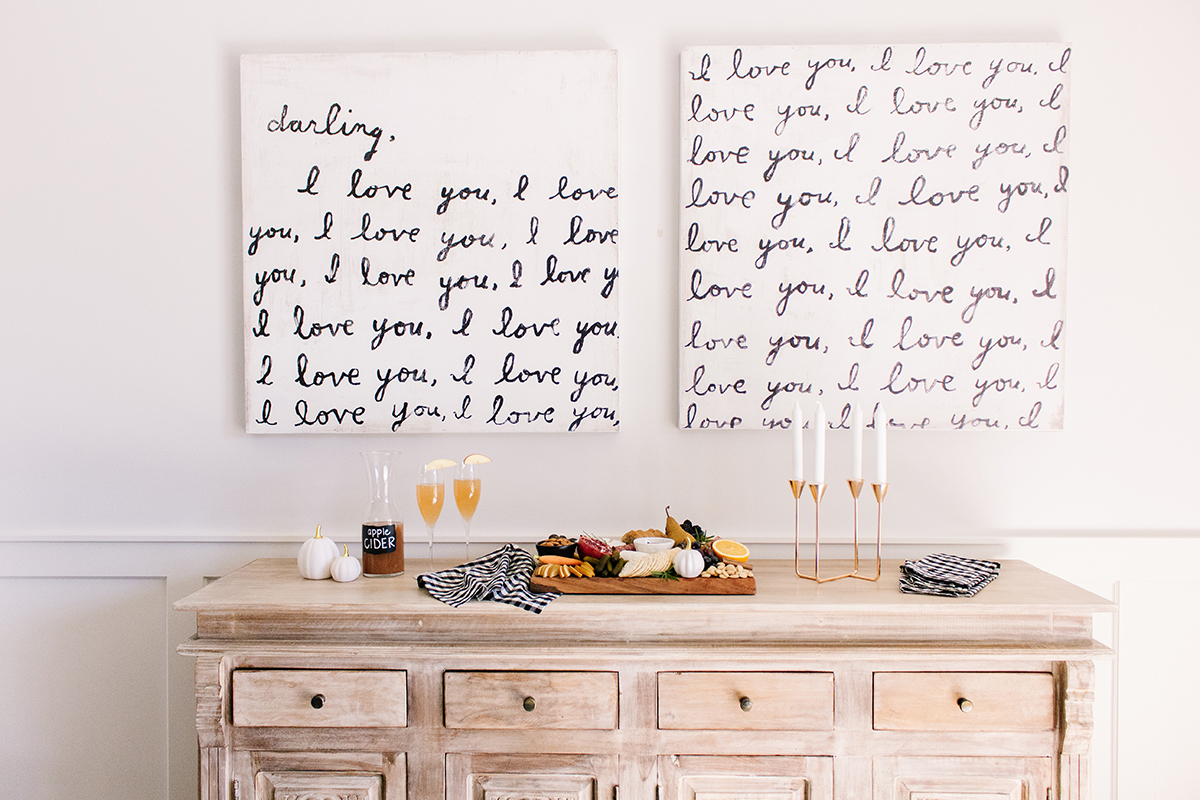 darling,
I love you, I love
you, I love you, I love
you, I love you, I love y
I love you, I love you,
I love you, I love you,
I love you, I love you,
I love you, I love you, I
love you, I love you, I
love you, I love you, I
love you, I love you, I
love you, I love you, I
love you, I love you, I
love you, I love you, I
love you, I love you, I
love you, I love you, I
apple
CIDER